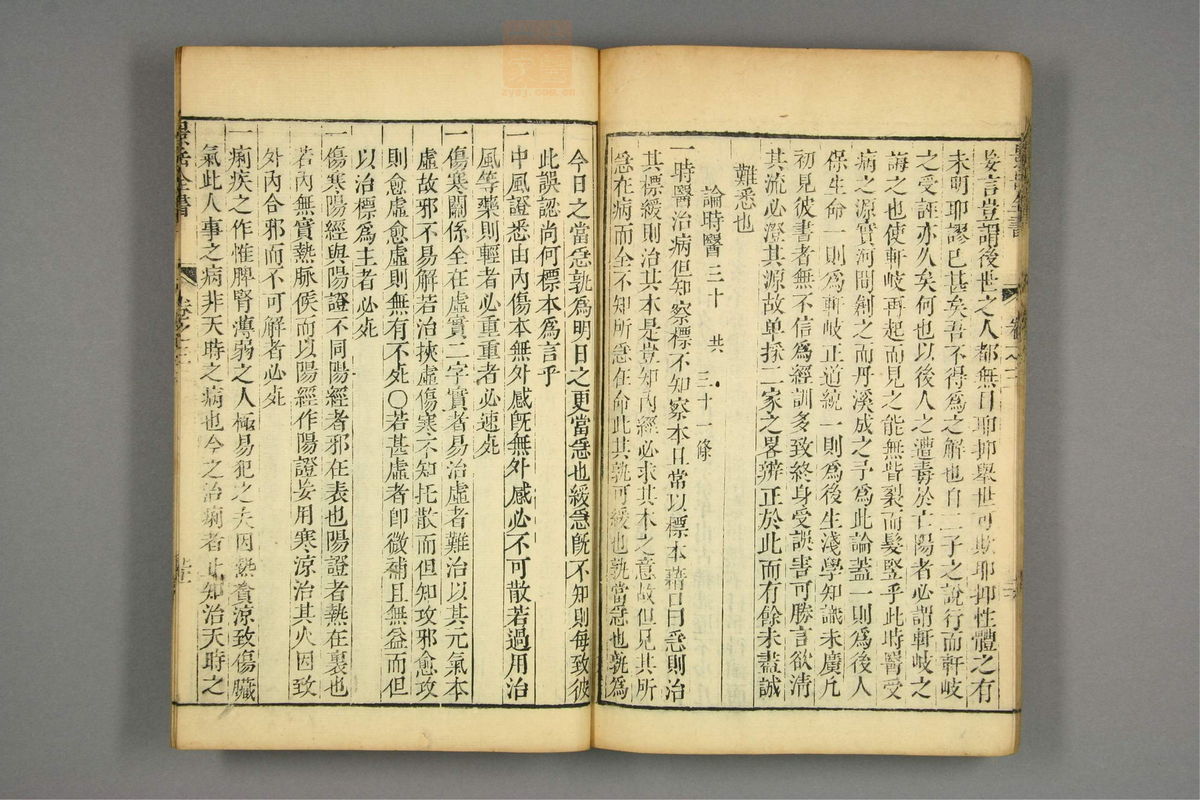 妄言豈謂後世之人都無目耶抑舉世可欺耶抑性體之有
未明耶謬已甚矣吾不得爲之解也自二子之說行而軒岐
之受誣亦久矣何也以後人之遭毒於亡陽者必謂軒岐之
誨之也使軒岐再起而見之能無眥裂而髮竪乎此時醫受
病之源實河間創之而丹溪成之予爲此論蓋一則爲後人
保生命一則爲軒岐正道統一則爲後生淺學知識未廣凡
初見彼書者無不信爲經訓多致終身受誤害可勝言欲清
其流必澄其源故单採二家之畧辨正於此而有餘未盡誠
難悉也
論時醫 三十 共 三十一條
一時醫治病但知察標不知察本且常以標本藉口曰急則治
其標緩則治其本是豈知內經必求其本之意故但見其所
急在病而全不知所急在命此其孰可緩也孰當急也孰爲
今日之當急孰爲明日之更當急也緩急旣不知則每致彼
此誤認尚何標本爲言乎
一中風證悉由內傷本無外感旣無外感必不可散若過用治
風等藥則輕者必重重者必速死
一傷寒關係全在虛實二字實者易治虛者難治以其元氣本
虛故邪不易解若治挾虛傷寒不知托散而但知攻邪愈攻
則愈虛愈虛則無有不死〇若甚虛者卽微補且無益而但
以治標爲主者必死
一傷寒陽經與陽證不同陽經者邪在表也陽證者熱在裏也
若內無實熱脉候而以陽經作陽證妄用寒涼治其火因致
外內合邪而不可解者必死
一痢疾之作惟脾腎薄弱之人極易犯之夫因熱貪涼致傷臟
氣此人事之病非天時之病也今之治痢者止知治天時之
景岳全書
卷之三